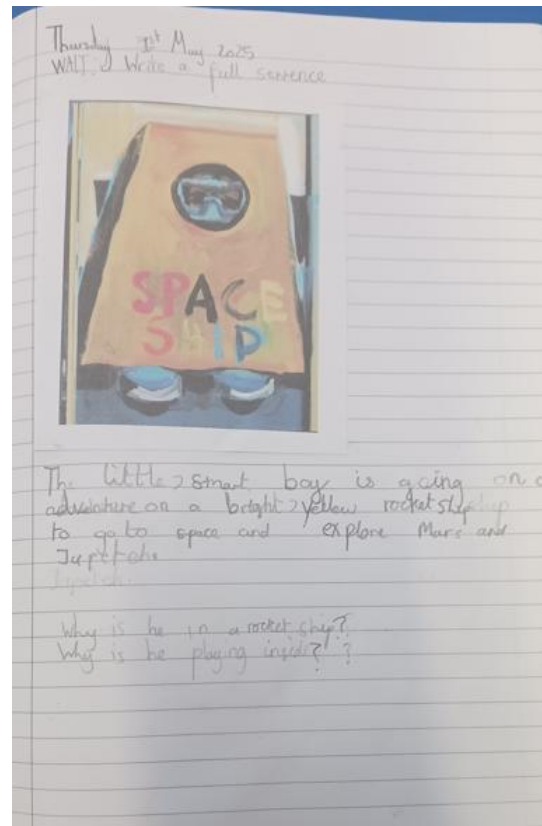 Thursday 1st May 2025
WALT: Write a full sentence
SPACE
SHIP
The little, smart boy is going on a
adventure on a bright, yellow rocket ship
to go to space and explore Mars and
Jupetch.
Why is he in a rocket ship?
Why is he playing inside? ?